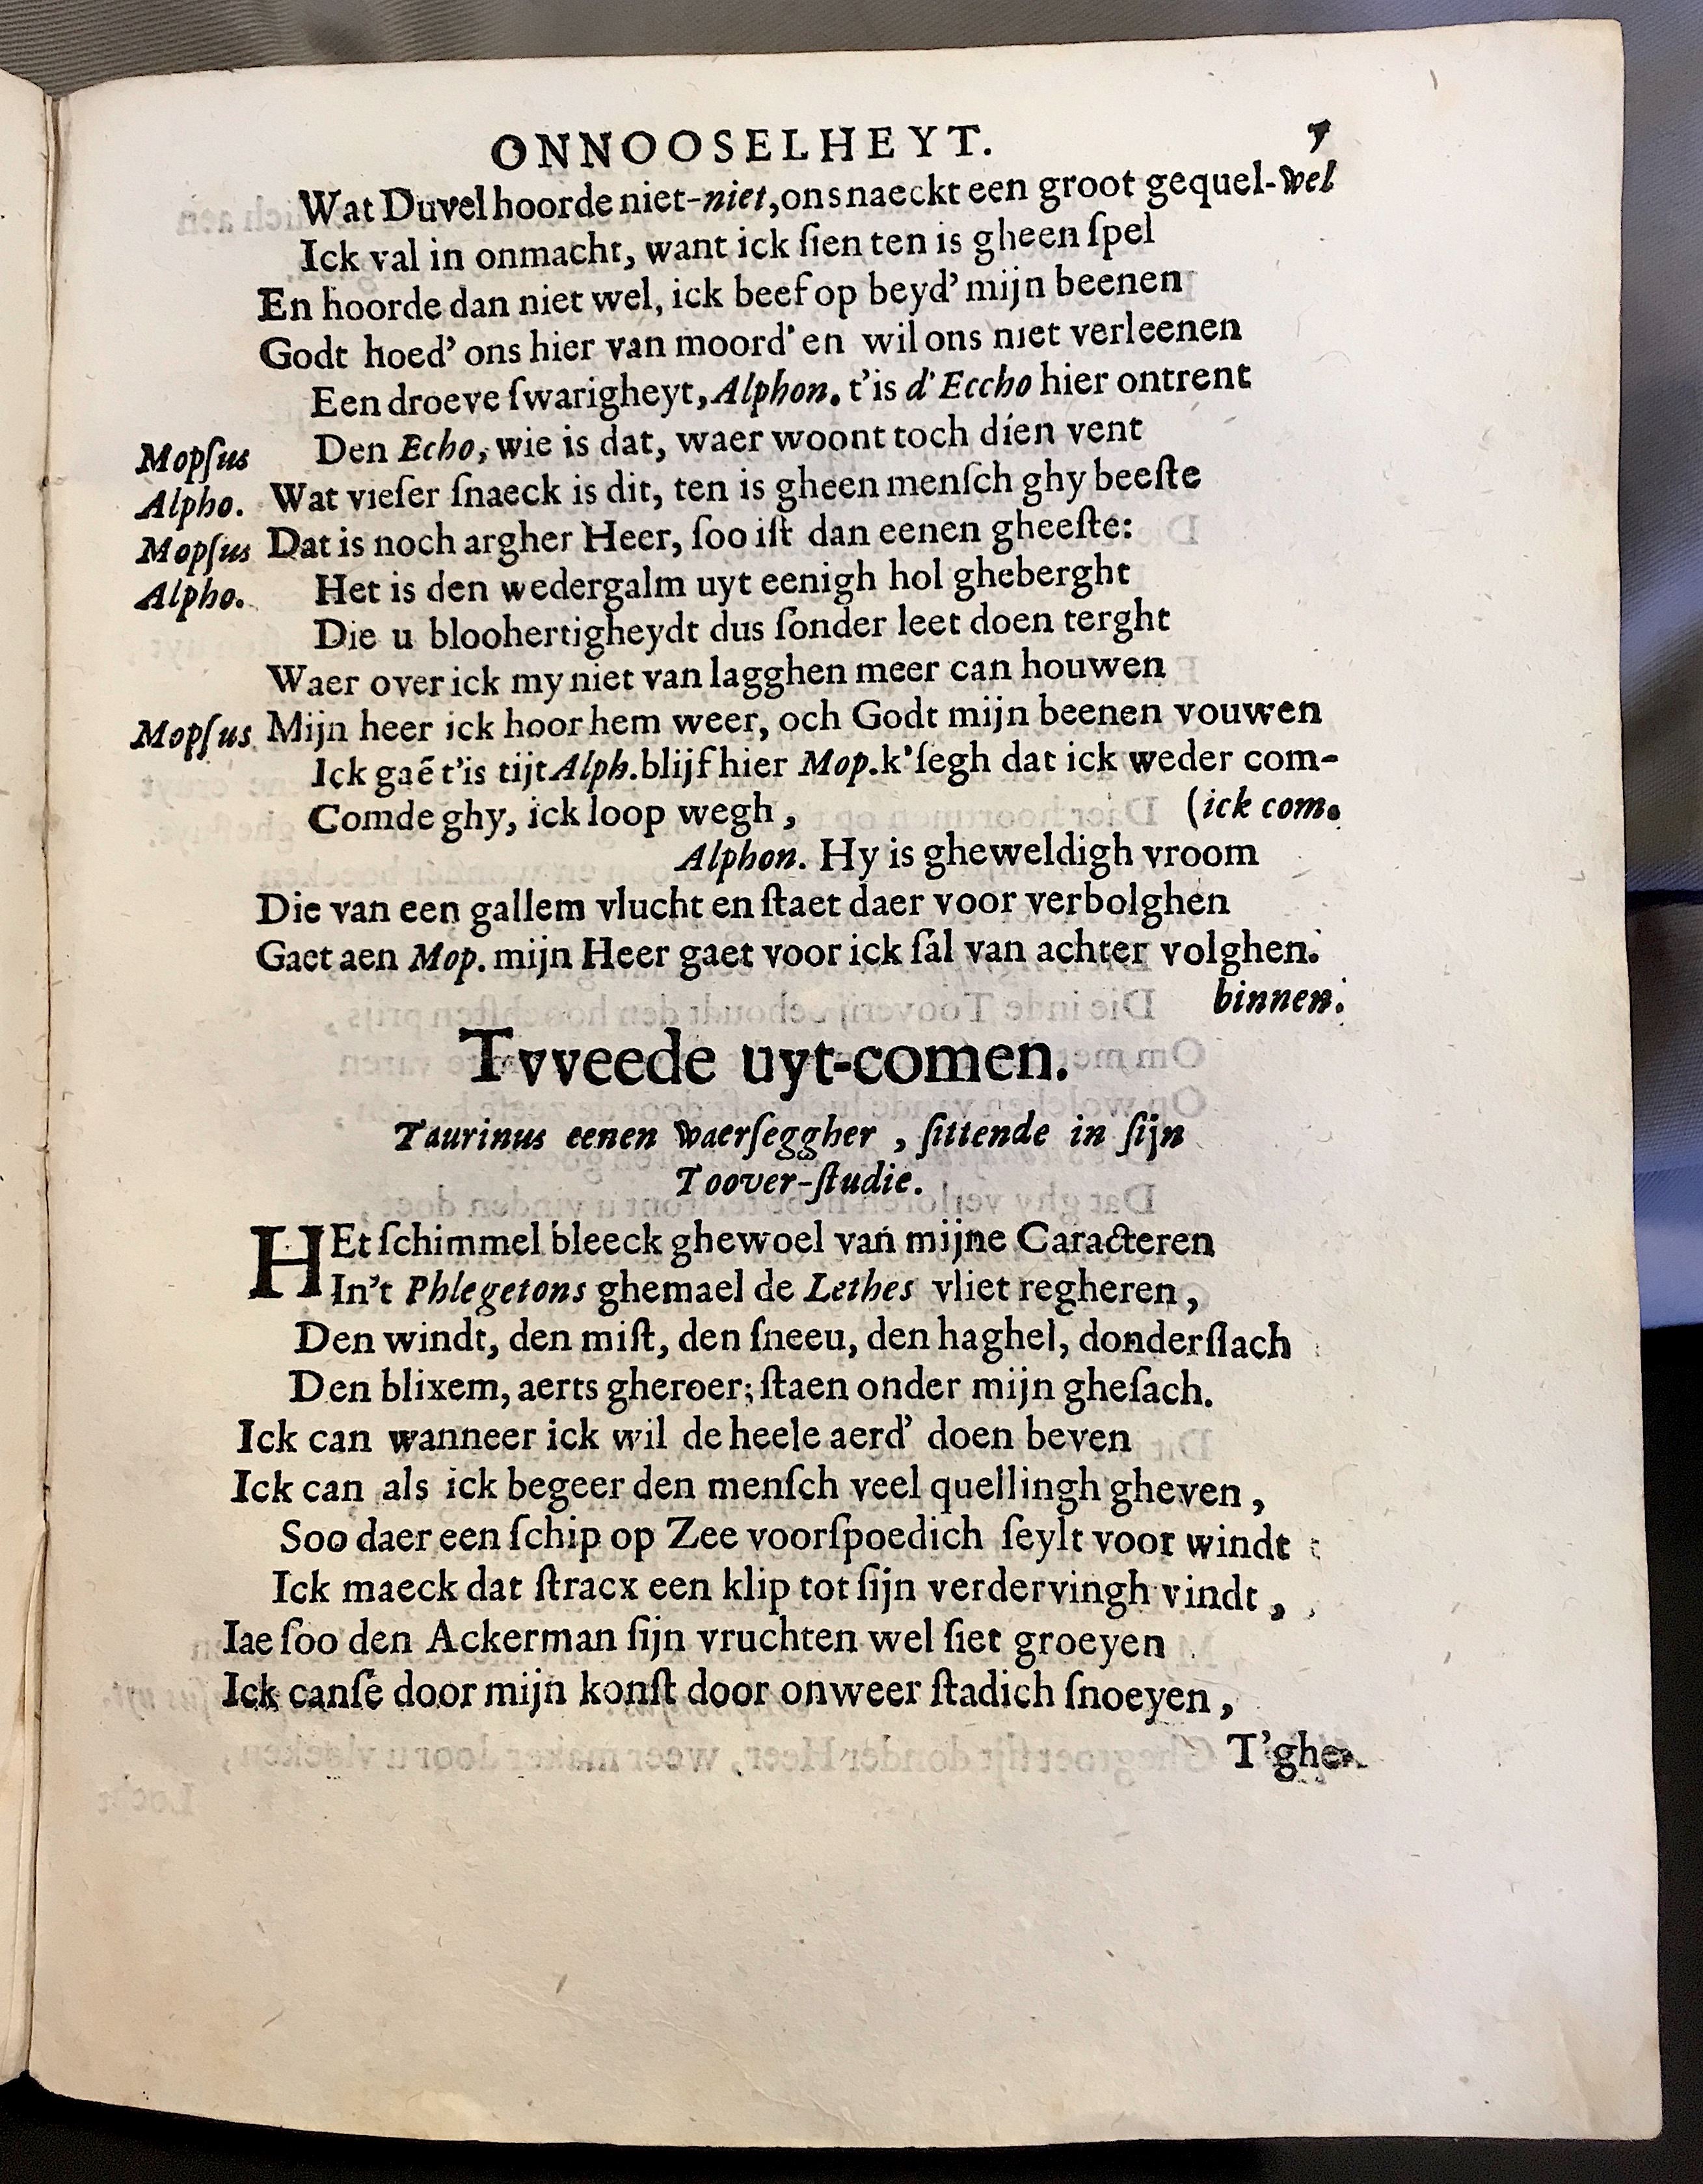 ONNOOSELHEYT. 7
Wat Duvel hoorde niet-niet, ons naeckt een groot gequel-wel
Ick val in onmacht, want ick ſien ten is gheen ſpel
En hoorde dan niet wel, ick beef op beyd' mijn beenen
Godt hoed' ons hier van moord' en wil ons niet verleenen
Een droeve ſwarigheyt, Alphon. t'is d'Eccho hier ontrent
Mopſus Den Echo, wie is dat, waer woont toch dien vent
Alpho. Wat vieſer ſnaeck is dit, ten is gheen menſch ghy beeſte
Mopſus Dat is noch argher Heer, ſoo iſt dan eenen gheeſte:
Alpho. Het is den wedergalm uyt eenigh hol gheberght
Die u bloohertigheydt dus ſonder leet doen terght
Waer over ick my niet van lagghen meer can houwen
Mopſus Mijn heer ick hoor hem weer, och Godt mijn beenen vouwen
Ick gaẽ t'is tijt Alph. blijf hier Mop. k'ſegh dat ick weder com-
Comde ghy, ick loop wegh, (ick com.
Alphon. Hy is gheweldigh vroom
Die van een gallem vlucht en ſtaet daer voor verbolghen
Gaet aen Mop. mijn Heer gaet voor ick ſal van achter volghen.
binnen.
Tvveede uyt-comen.
Taurinus eenen waerſeggher, ſittende in ſijn
Toover-ſtudie.
HEt ſchimmel bleeck ghewoel van mijne Caracteren
In't Phlegetons ghemael de Lethes vliet regheren,
Den windt, den miſt, den ſneeu, den haghel, donderſlach
Den blixem, aerts gheroer; ſtaen onder mijn gheſach.
Ick can wanneer ick wil de heele aerd' doen beven
Ick can als ick begeer den menſch veel quellingh gheven,
Soo daer een ſchip op Zee voorſpoedich ſeylt voor windt
Ick maeck dat ſtracx een klip tot ſijn verdervingh vindt,
Iae ſoo den Ackerman ſijn vruchten wel ſiet groeyen
Ick canſe door mijn konſt door onweer ſtadich ſnoeyen,
T'ghe-